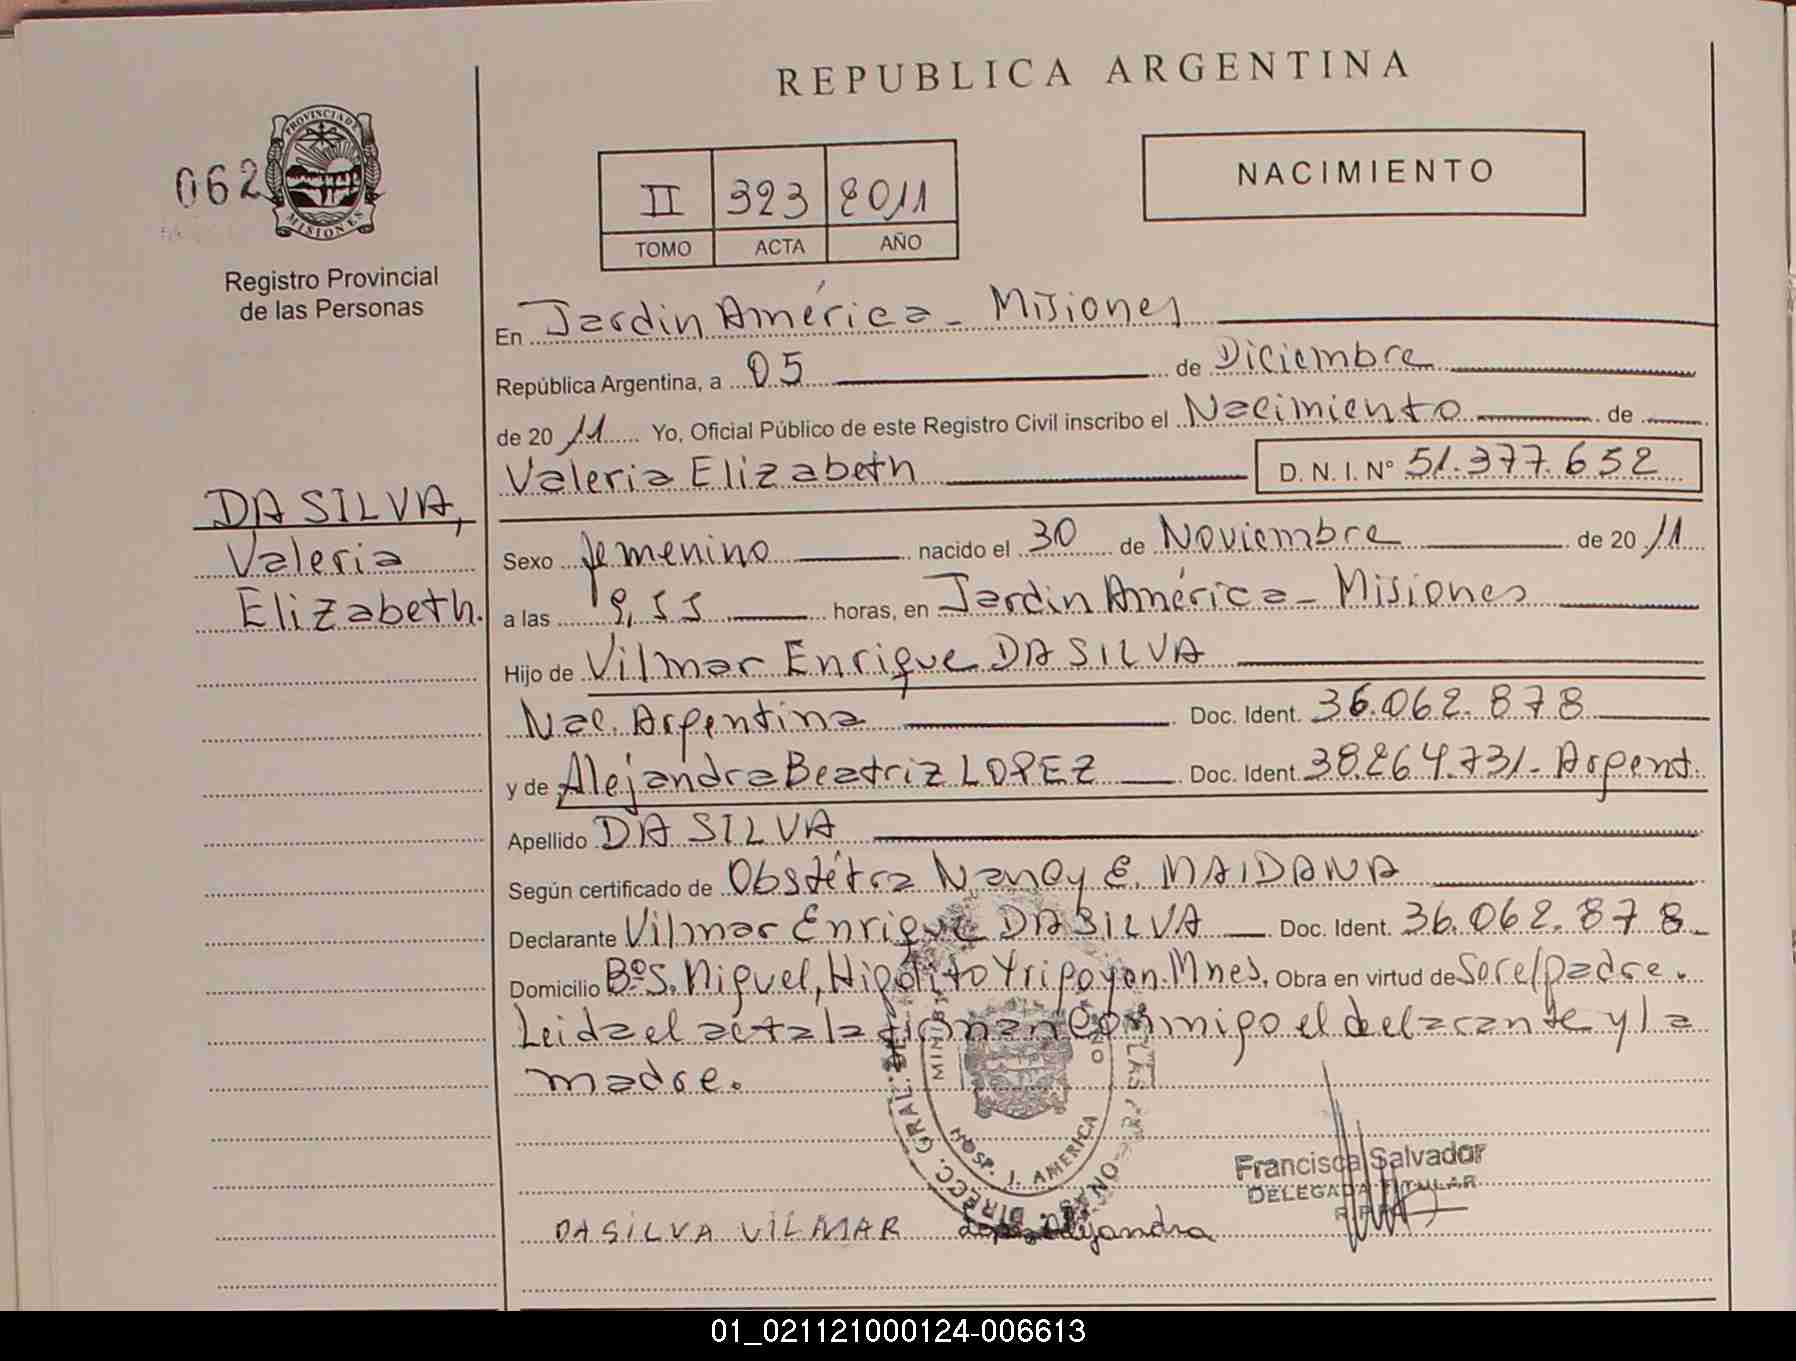 REPUBLICA ARGENTINA
062
PROVINCIA DE
MISIONES
Registro Provincial
de las Personas
II 323 2011
TOMO ACTA AÑO
NACIMIENTO
En Jardin América - Misiones
República Argentina, a 05 de Diciembre
de 2011 Yo, Oficial Público de este Registro Civil inscribo el Nacimiento de
Valeria Elizabeth D. N. I. Nº 51.377.652
DA SILVA,
Valeria
Elizabeth.
Sexo femenino nacido el 30 de Noviembre de 2011
a las horas, en Jardin América - Misiones
Hijo de Vilmar Enrique DA SILVA
Nac. Argentina Doc. Ident. 36.062.878
y de Alejandra Beatriz LOPEZ Doc. Ident. 38.264.731- Argent.
Apellido DA SILVA
Según certificado de Obstétra Nancy E. MAIDANA
Declarante Vilmar Enrique DA SILVA Doc. Ident. 36.062.878
Domicilio Bº S. Miguel, Hipólito Yrigoyen. Mnes. Obra en virtud de Ser el padre.
Leida el acta la firman conmigo el declarante y la
madre.
HOSP. J. AMERICA
DIRECC. GRAL. DE
Francisca Salvador
DELEGADA TITULAR
DA SILVA VILMAR Alejandra
01_021121000124-006613